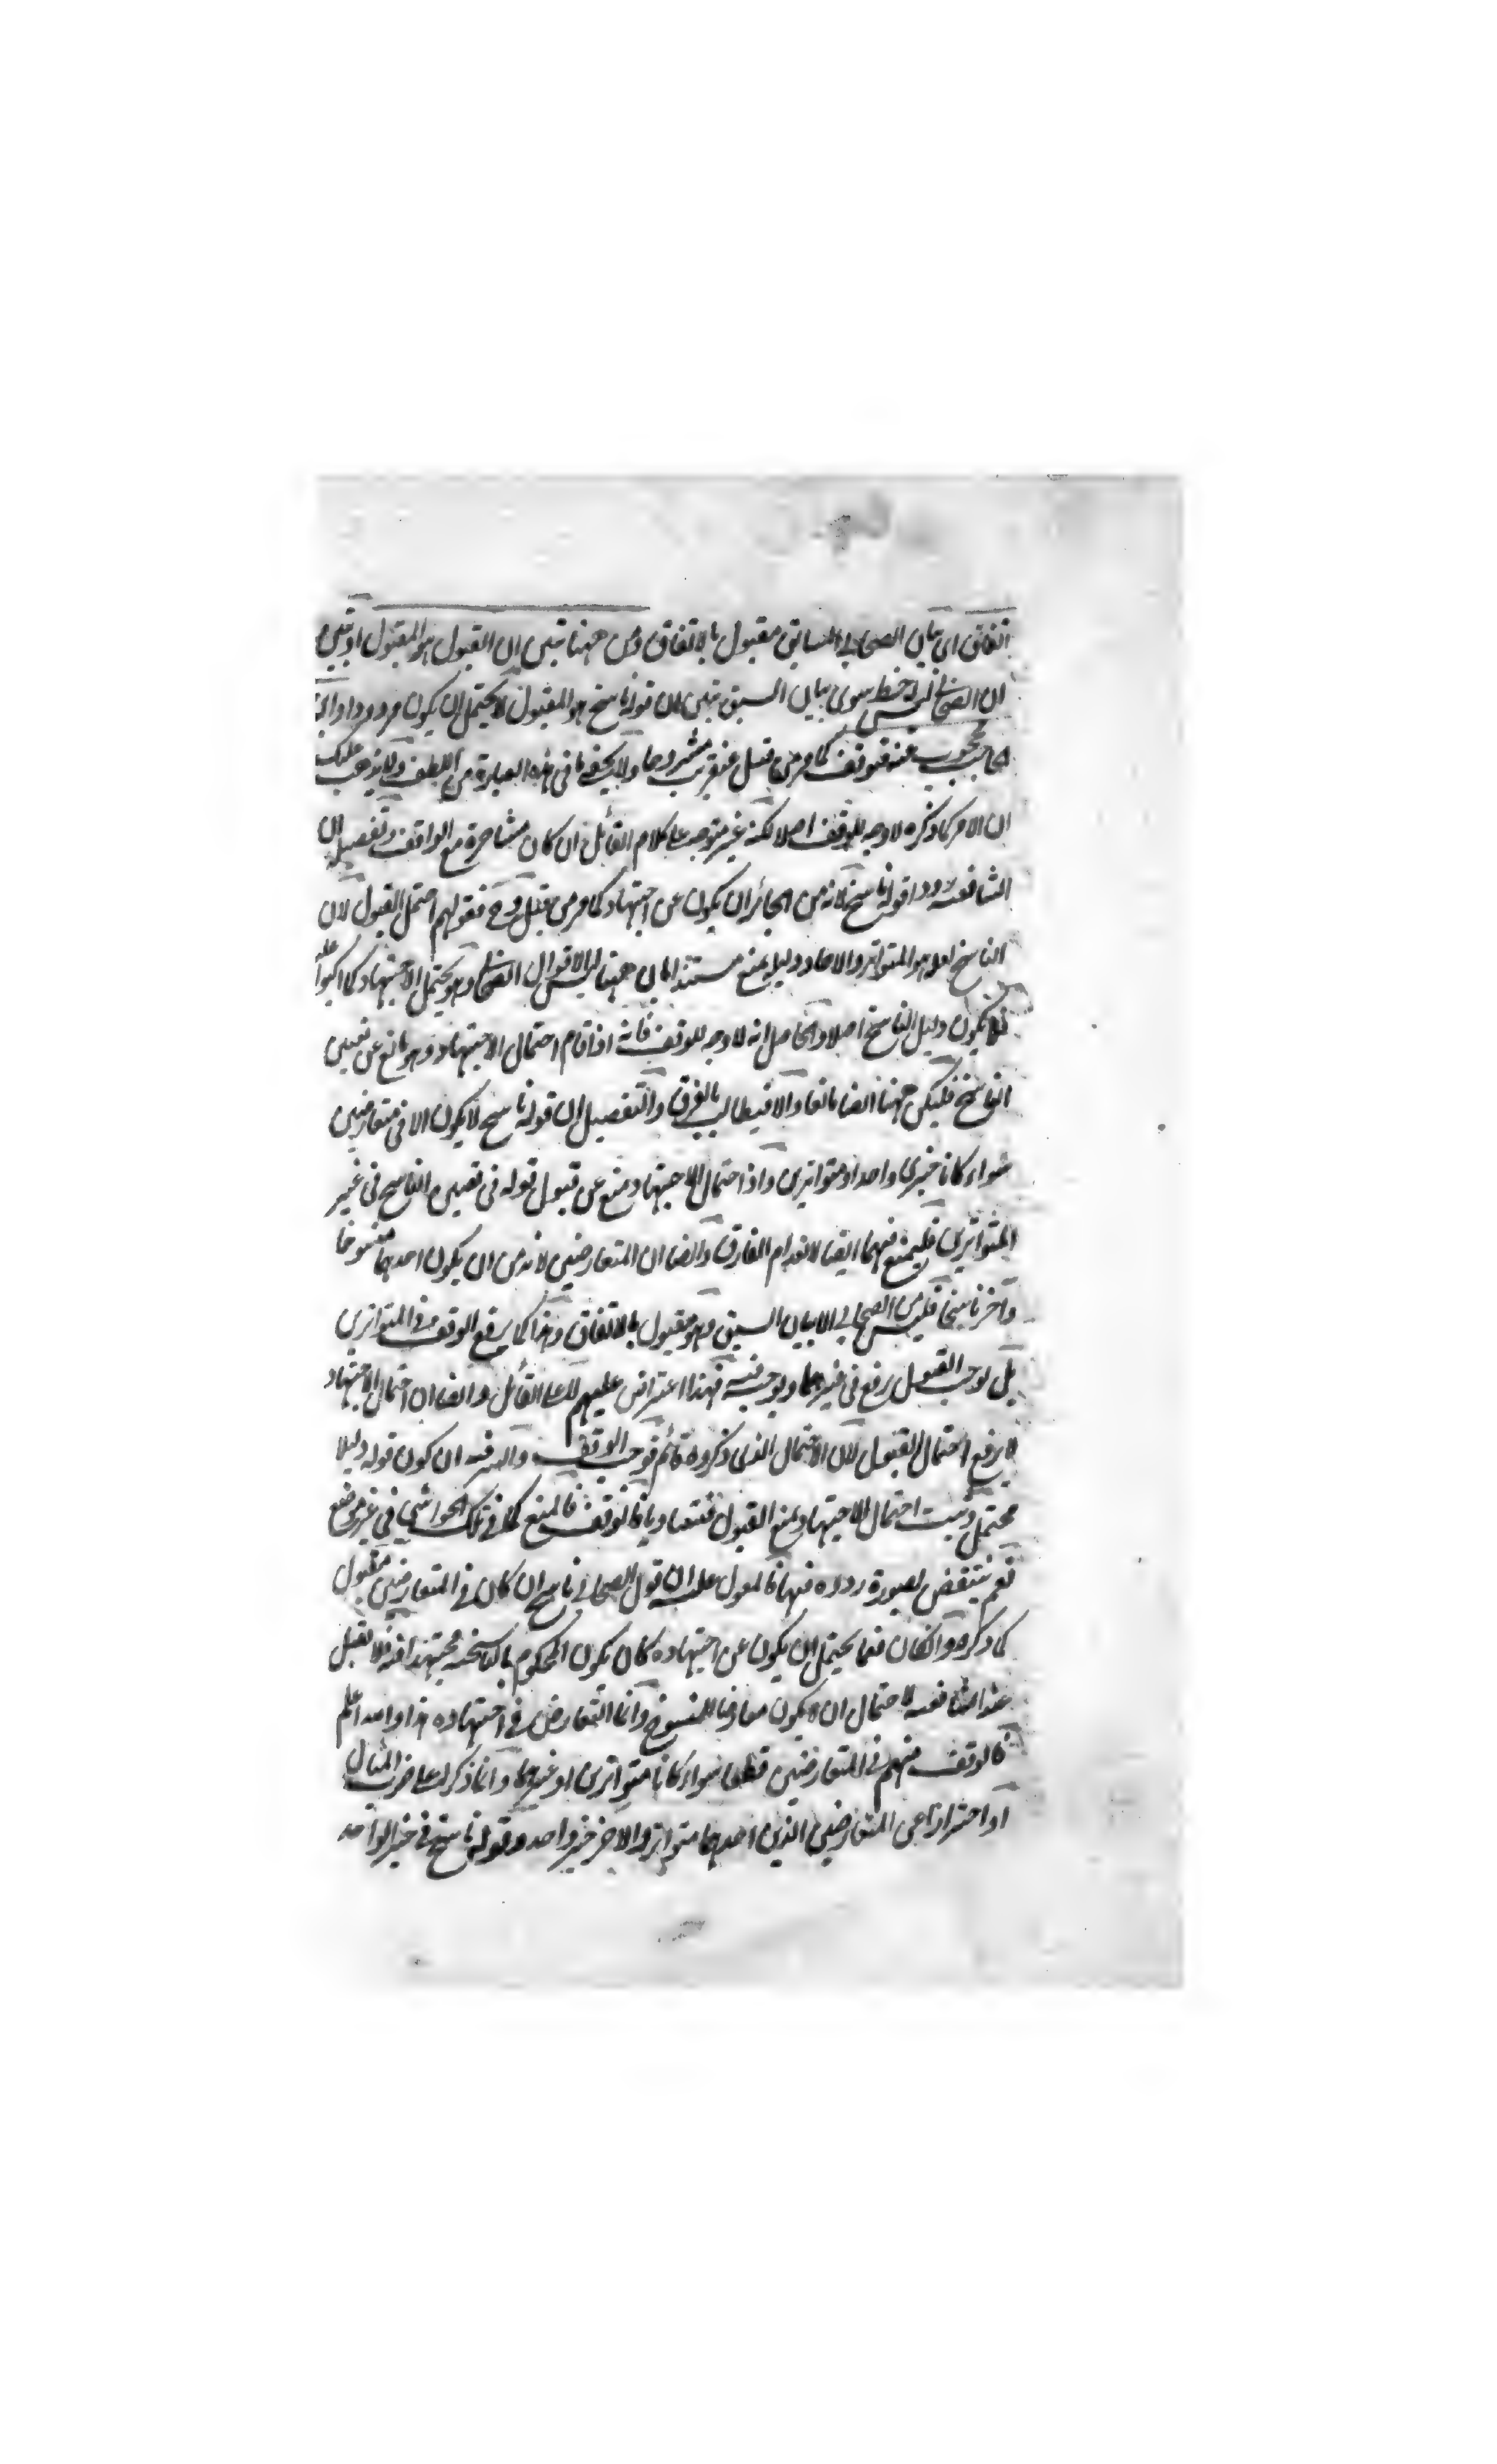 اتفاق اى بيان الصحابي السابق مقبول بالاتفاق ومن ههنا تبين ان القبول هو المقبول او تبين
ان الصحابي ليس له خط سوى بيان السبق تبين ان قوله ناسخ هو المقبول لا يحتمل ان يكون مردودا
فتوقف كما مر من قبل عنقريب مشروحا ولا يخفى ما في هذه العبارة من اللطف ولا يذهب عليك
ان الامر كما ذكره لا وجه للوقف اصلا لكنه غير متوجه على كلام القائل ان كان مشاجرة مع الواقف وتفصيله ان
الشافعية ردوا قوله ناسخ لانه من الجائز ان يكون عن اجتهاد كما مر من قبل وح فقولهم احتمل القبول لان
الناسخ هو المتواتر والاحاد دليله يمنع مستندا بان ههنا ليس الا قول الصحابي وهو يحتمل الاجتهاد كما
فلا يكون دليل الناسخ اصلا والحاصل انه لا وجه للوقف فانه اذا قام احتمال الاجتهاد وهو مانع عن تعيين
الناسخ فليكن ههنا ايضا مانعا والا فيطالب بالفرق والتفصيل ان قوله ناسخ لا يكون الا في متعارضين
سواء كانا خبرى واحد او متواترين واذا احتمال الاجتهاد منع عن قبول قوله في تعيين الناسخ في غير
المتواترين فليمنع فيهما ايضا لانعدام الفارق وايضا ان المتعارضين لا بد من ان يكون احدهما منسوخا
وآخر ناسخا فليس من الصحابي الا بيان السبق وهو مقبول بالاتفاق وهذا كما يرفع الوقف في المتواترين
بل يوجب القبول يرفع في غيرهما ويوجب فيه فهذا اعتراض عليهم لا على القائل وايضا ان احتمال الاجتهاد
لا يرفع احتمال القبول لان الاحتمال الذى ذكروه قائم فوجب الوقف والسر فيه ان كون قوله دليلا
محتمل وثبت احتمال الاجتهاد يمنع القبول فتعاديا فالوقف فالمنع كما في تلك الحواشي في غير موضع
نعم ينتقض بصورة ردوه فيها فالمعول عليه ان قول الصحابي ناسخ ان كان في المتعارضين مقبول
كما ذكره وان كان فيما يحتمل ان يكون عن اجتهاده كان يكون المحكوم بالناسخية مجتهدا فيه فلا تقبل
عند الشافعية لاحتمال ان لا يكون معارضا للمنسوخ وانما التعارض في اجتهاده هذا والله اعلم
فالوقف منهم في المتعارضين قطعا سواء كانا متواترين او غيرهما وانما ذكر على ضرب المثال
او احترازا عن المتعارضين الذين احدهما متواتر والاخر خبر واحد وقوله ناسخ في خبر الواحد